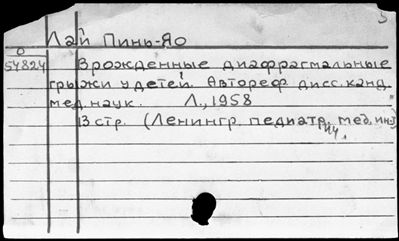 Лай Пинь-Яо
0
54824 Врожденные диафрагмальные
грыжи у детей. Автореф. дисс. канд.
мед. наук. Л., 1958
13 стр. (Ленингр. педиатр. мед. ин-т)